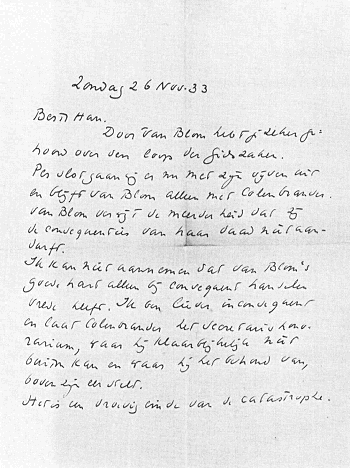 Zondag 26 Nov. 33
Beste Han.
Door Van Blom hebt je zeker ge-
hoord over den loop der Gidszaken.
Per slot gaan wij er nu met zijn vijven uit
en blijft van Blom alleen met Colenbrander.
van Blom verwijt de meerderheid dat zij
de consequenties van haar daad niet aan-
durft.
Ik kan niet aannemen dat van Blom's
goede hart alleen bij consequent handelen
vrede heeft. Ik ben liever inconsequent
en laat Colenbrander het secretaris hono-
rarium, waar hij klaarblijkelijk niet
buiten kan en waar hij het behoud van,
boven zijn eer stelt.
Het is een droevig einde van de catastrophe.